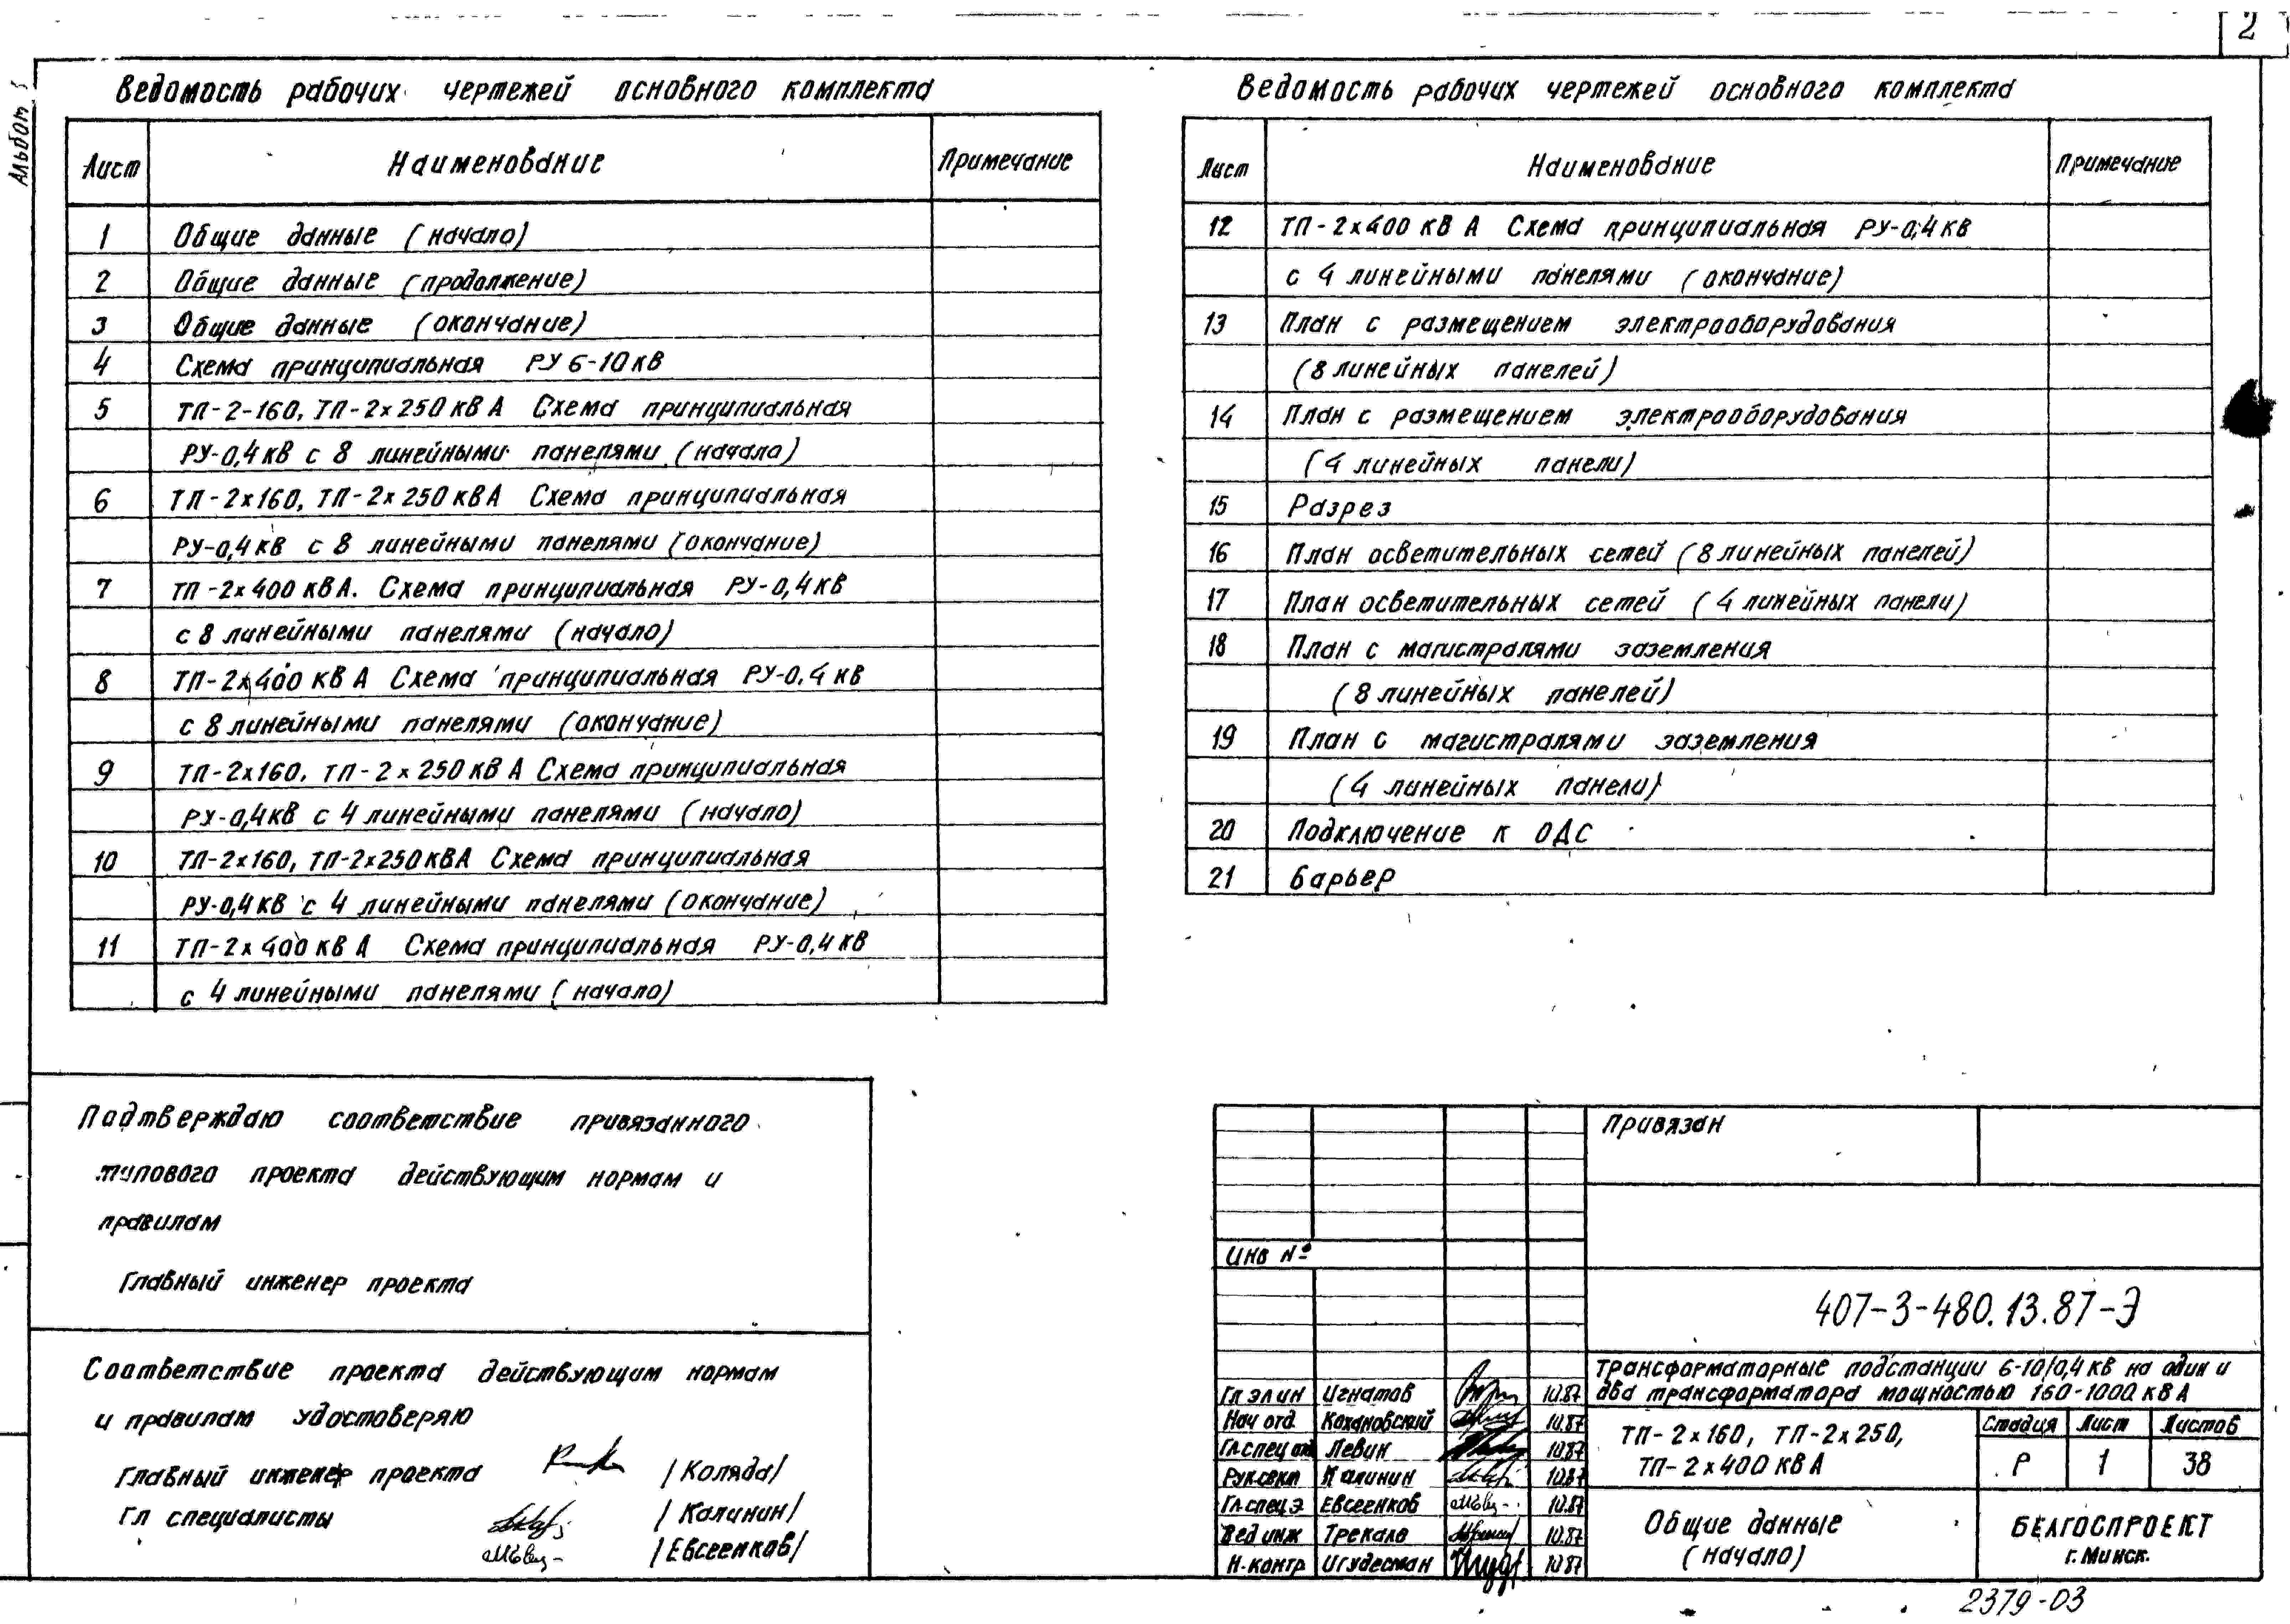 2
Альбом
Ведомость рабочих чертежей основного комплекта
Лист Наименование Примечание
1 Общие данные (начало)
2 Общие данные (продолжение)
3 Общие данные (окончание)
4 Схема принципиальная РУ 6-10 кВ
5 ТП-2-160, ТП-2х250 кВ А Схема принципиальная
РУ-0,4 кВ с 8 линейными панелями (начало)
6 ТП-2х160, ТП-2х250 кВ А Схема принципиальная
РУ-0,4 кВ с 8 линейными панелями (окончание)
7 ТП-2х400 кВ А. Схема принципиальная РУ-0,4 кВ
с 8 линейными панелями (начало)
8 ТП-2х400 кВ А Схема принципиальная РУ-0,4 кВ
с 8 линейными панелями (окончание)
9 ТП-2х160, ТП-2х250 кВ А Схема принципиальная
РУ-0,4 кВ с 4 линейными панелями (начало)
10 ТП-2х160, ТП-2х250 кВ А Схема принципиальная
РУ-0,4 кВ с 4 линейными панелями (окончание)
11 ТП-2х400 кВ А Схема принципиальная РУ-0,4 кВ
с 4 линейными панелями (начало)
Ведомость рабочих чертежей основного комплекта
Лист Наименование Примечание
12 ТП-2х400 кВ А Схема принципиальная РУ-0,4 кВ
с 4 линейными панелями (окончание)
13 План с размещением электрооборудования
(8 линейных панелей)
14 План с размещением электрооборудования
(4 линейных панели)
15 Разрез
16 План осветительных сетей (8 линейных панелей)
17 План осветительных сетей (4 линейных панели)
18 План с магистралями заземления
(8 линейных панелей)
19 План с магистралями заземления
(4 линейных панели)
20 Подключение к ОДС
21 Барьер
Подтверждаю соответствие привязанного
типового проекта действующим нормам и
правилам
Главный инженер проекта
Соответствие проекта действующим нормам
и правилам удостоверяю
Главный инженер проекта /Коляда/
Гл специалисты /Калинин/
/Евсеенков/
Привязан
Инв №
407-3-480.13.87-Э
Трансформаторные подстанции 6-10/0,4 кВ на один и
два трансформатора мощностью 160-1000 кВ А
Гл эл ин Игнатов 10.87
Нач отд Кохановский 10.87
Гл.спец од Левин 10.87
Рук.сект Калинин 10.87
Гл.спец э Евсеенков 10.87
Вед инж Трекало 10.87
Н.контр Игудесман 10.87
ТП-2х160, ТП-2х250,
ТП-2х400 кВ А
Стадия Лист Листов
Р 1 38
Общие данные
(начало)
БЕЛГОСПРОЕКТ
г. Минск.
2379-03